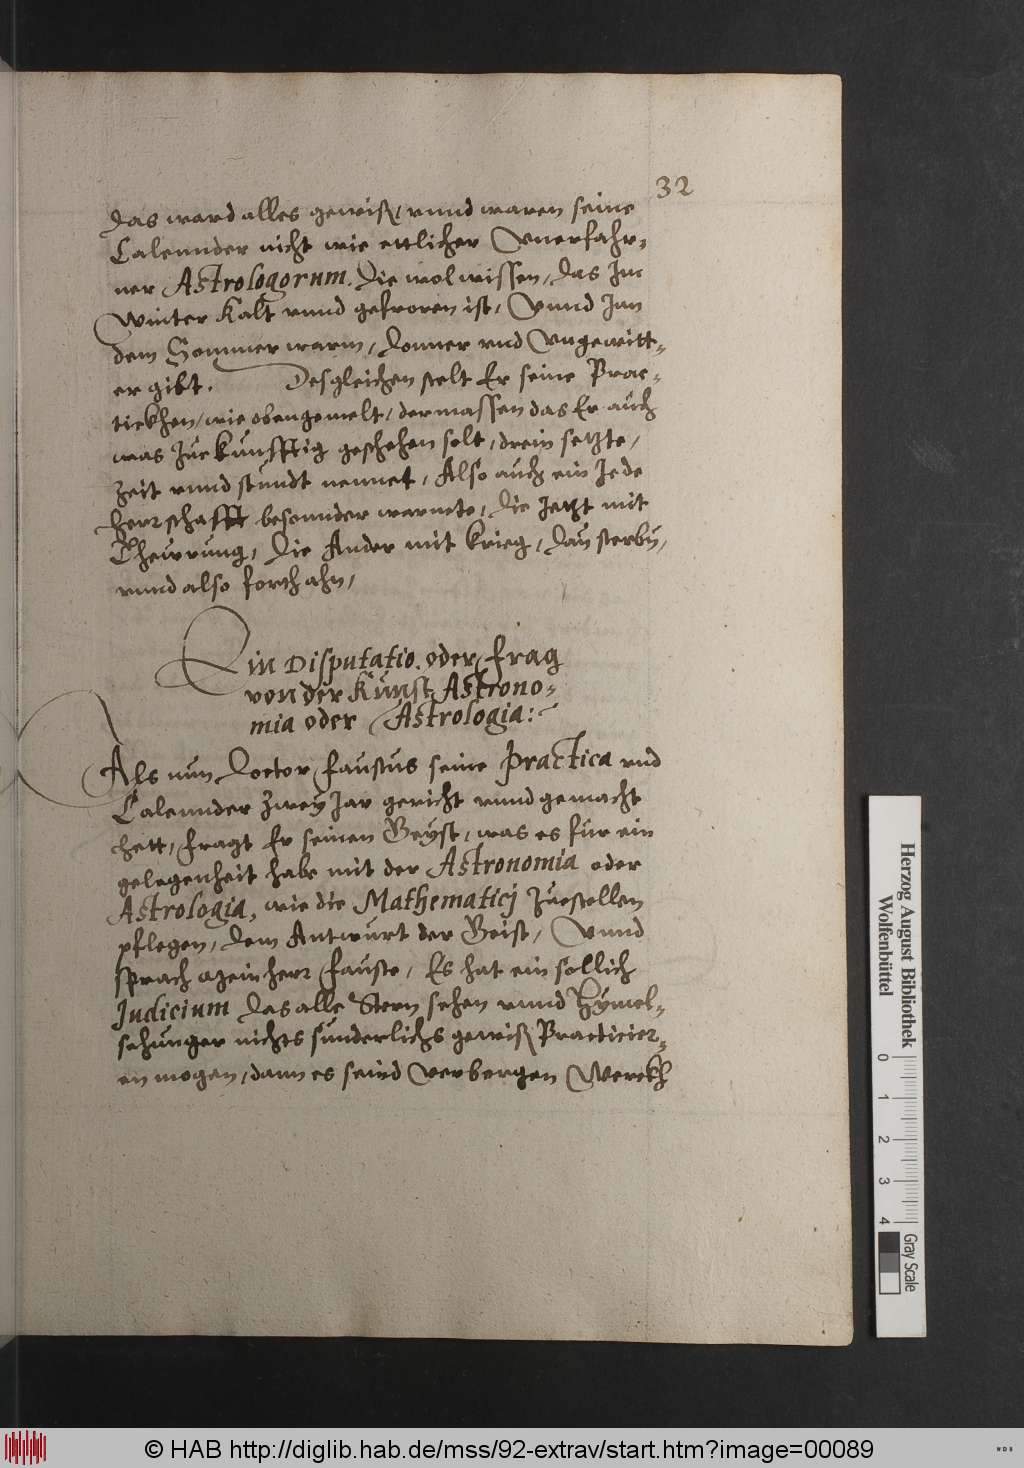 32
das ward alles gewiß, vnnd waren seine
Calennder nicht wie ettlicher Vnerfahr-
ner Astrologorum. die wol wissen, das Im
Winter kalt vnnd gefroren ist, Vnnd Inn
dem Sommer warm, donner vnd Vngewitt-
er gibt. Desgleichen stelt Er seine Prac-
tickhen, wie obengemelt, dermassen das Er auch
was Zuekunfftig geschehen solt, drein setzte,
Zeit vnnd stundt nennet, Also auch ein Jede
herrschafft besonnder warnete, die Jetzt mit
Thewrung, die Ander mit krieg, dan sterbn,
vnnd also forthahn,
Ein Disputatio. oder frag
von der Kunst Astrono-
mia oder Astrologia:
Als nun doctor faustus seine Practica vnd
Calennder Zwey Jar gericht vnnd gemacht
hett, fragt Er seinen Geyst, was es fur ein
gelegenheit habe mit der Astronomia oder
Astrologia, wie die Mathematicj Zuestellen
pflegen, dem Antwurt der Geist, Vnnd
sprach mein herr fauste, Es hat ein sollich
Judicium das alle Stern sehen vnnd Hymel-
sehunger nichts sunderlichs gewiß Practicier-
en mogen, dann es seind verborgen Werckh
Herzog August Bibliothek
Wolfenbüttel
0 1 2 3 4
Gray Scale
© HAB http://diglib.hab.de/mss/92-extrav/start.htm?image=00089
WDB